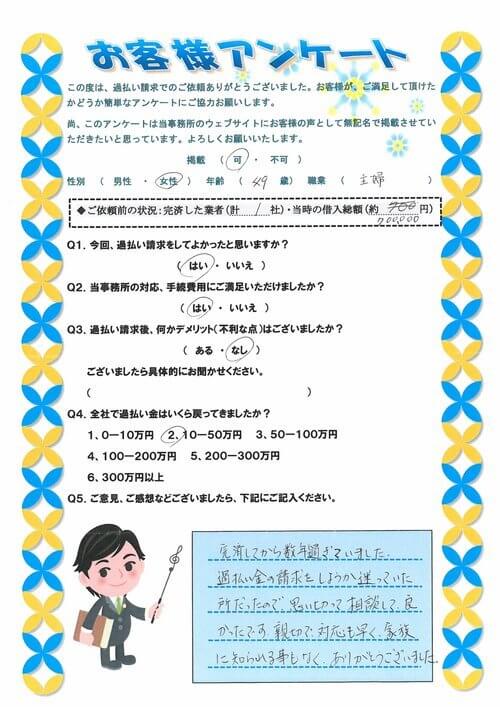 お客様アンケート
この度は、過払い請求でのご依頼ありがとうございました。お客様が、ご満足して頂けた
かどうか簡単なアンケートにご協力お願いします。
尚、このアンケートは当事務所のウェブサイトにお客様の声として無記名で掲載させてい
ただきたいと思っています。よろしくお願いいたします。
掲載 ( 可 ・ 不可 )
性別 ( 男性 ・ 女性 ) 年齢 ( 49 歳) 職業 ( 主婦 )
◆ご依頼前の状況:完済した業者(計 1 社)・当時の借入総額(約 700 円)
700,000
Q1. 今回、過払い請求をしてよかったと思いますか?
( はい ・ いいえ )
Q2. 当事務所の対応、手続費用にご満足いただけましたか?
(はい ・ いいえ )
Q3. 過払い請求後、何かデメリット(不利な点)はございましたか?
( ある ・ なし )
ございましたら具体的にお聞かせください。
( )
Q4. 全社で過払い金はいくら戻ってきましたか?
1、0ー10万円 2、10ー50万円 3、50ー100万円
4、100ー200万円 5、200ー300万円
6、300万円以上
Q5. ご意見、ご感想などございましたら、下記にご記入ください。
完済してから数年過ぎていました。
過払い金の請求をしようか迷っていた
所だったので、思い切って相談して、良
かったです。親切で対応も早く、家族
に知られる事もなく、ありがとうございました。